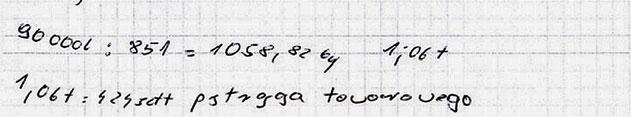 90000l : 85l = 1058,82 kg 1,06 t
1,06 t = 424 szt pstrąga towarowego